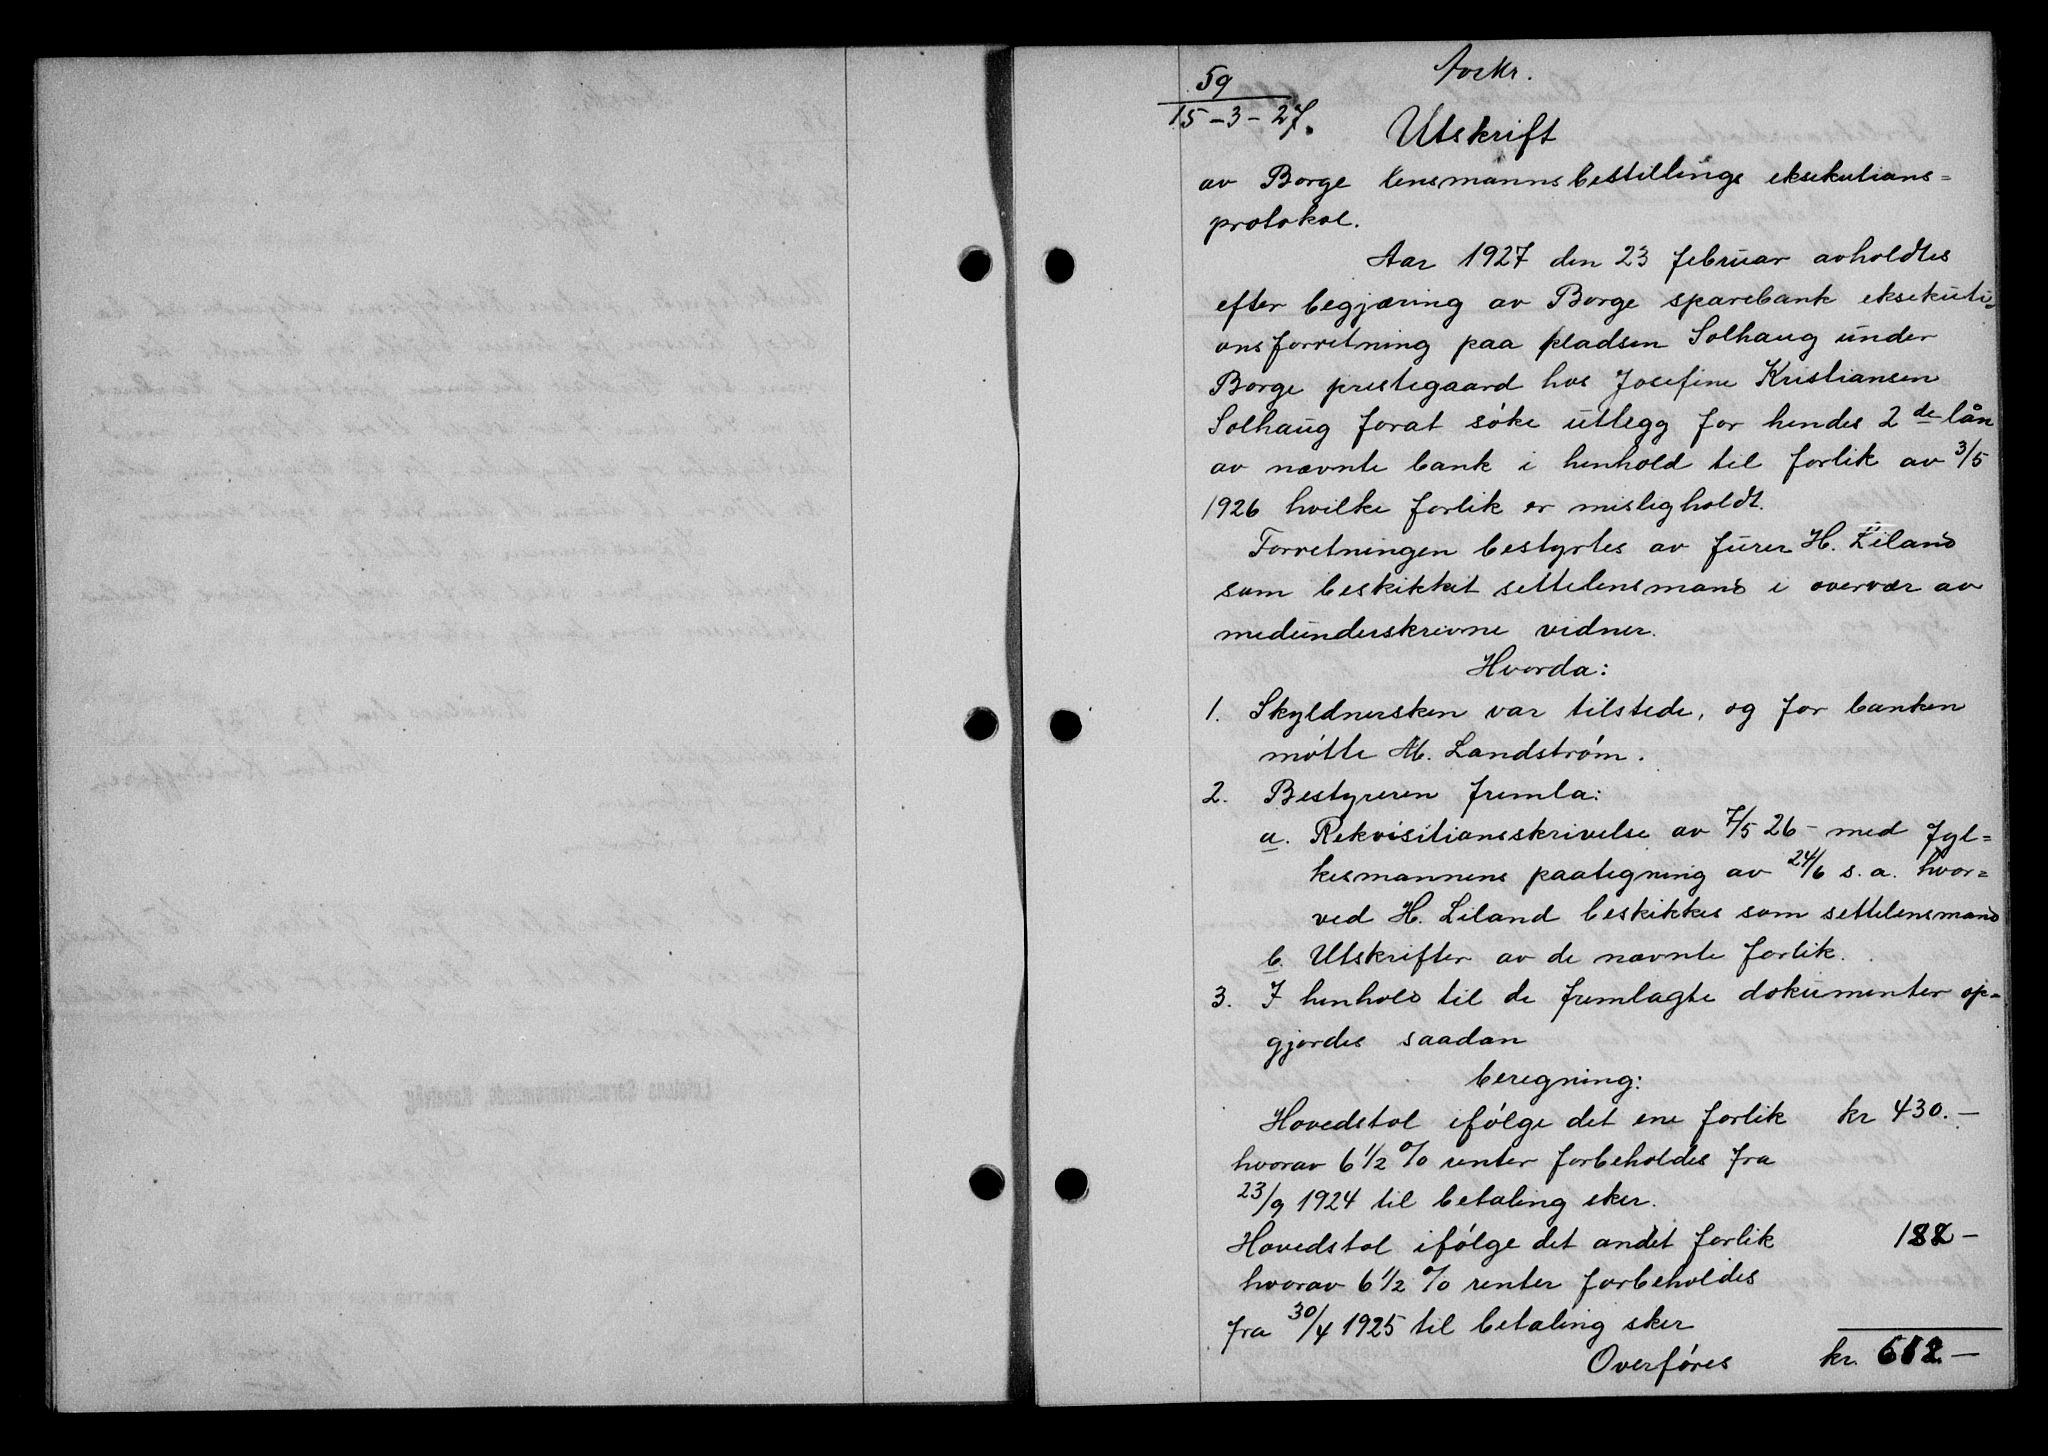 59
15-3-27.
Avskr.
Utskrift
av Borge lensmannsbestillings eksekutions=
protokol.
Aar 1927 den 23 februar avholdtes
efter begjæring av Borge sparebank eksekuti-
onsforretning paa pladsen Solhaug under
Borge prestegaard hos Josefine Kristiansen
Solhaug forat söke utlegg for hendes 2de lån
av nævnte bank i henhold til forlik av 3/5
1926 hvilke forlik er misligholdt.
Forretningen bestyrtes av furer H. Liland
som beskikket settelensmand i overvær av
medunderskrevne vidner.
Hvorda:
1. Skyldnersken var tilstede, og for banken
mötte M. Landström.
2. Bestyreren fremla:
a. Rekvisitionsskrivelse av 7/5 26 - med fyl=
kesmannens paategning av 24/6 s.a. hvor=
ved H. Liland beskikkes som settelensmand
b. Utskrifter av de nævnte forlik.
3. I henhold til de fremlagte dokumenter op=
gjordes saadan
beregning:
Hovedstol ifölge det ene forlik kr 430.-
hvorav 6 1/2 % renter forbeholdes fra
23/9 1924 til betaling sker.
Hovedstol ifölge det andet forlik 182-
hvorav 6 1/2 % renter forbeholdes
fra 30/4 1925 til betaling sker
Overföres kr. 612-